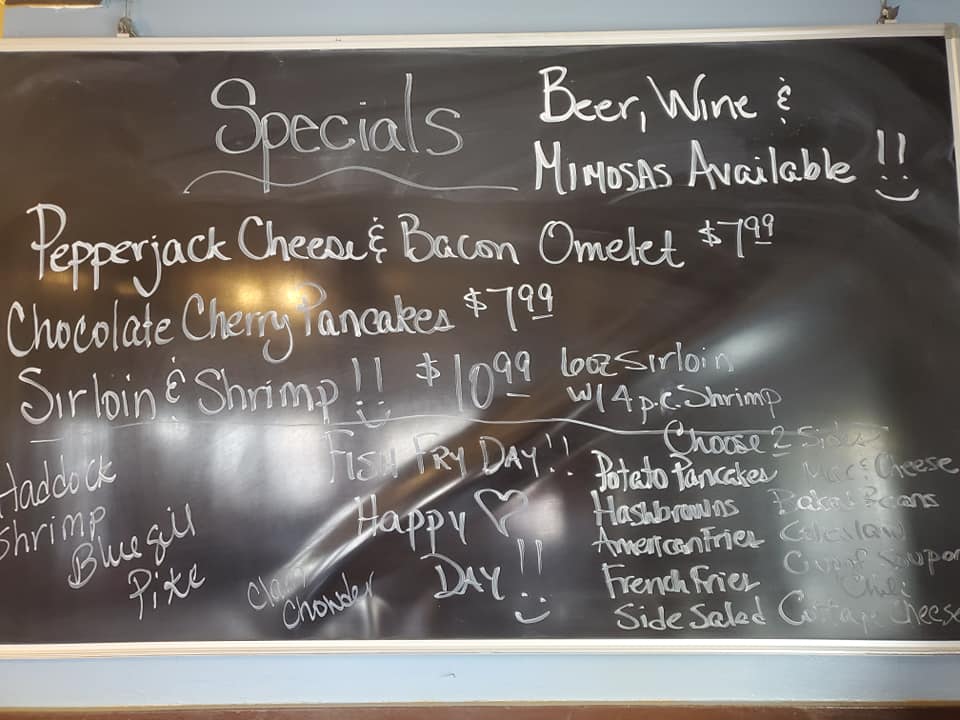 Specials
Beer, Wine &
Mimosas Available !!
Pepperjack Cheese & Bacon Omelet $7.99
Chocolate Cherry Pancakes $7.99
Sirloin & Shrimp!! $10.99
6oz Sirloin
w/ 4 p.c. Shrimp
Fish Fry Day!!
Happy ♡
Day!!
Haddock
Shrimp
Bluegill
Pike
Clam
Chowder
Choose 2 Sides
Potato Pancakes
Hashbrowns
American Fries
French Fries
Side Salad
Mac & Cheese
Baked Beans
Coleslaw
Cup of Soup or
Chili
Cottage Cheese